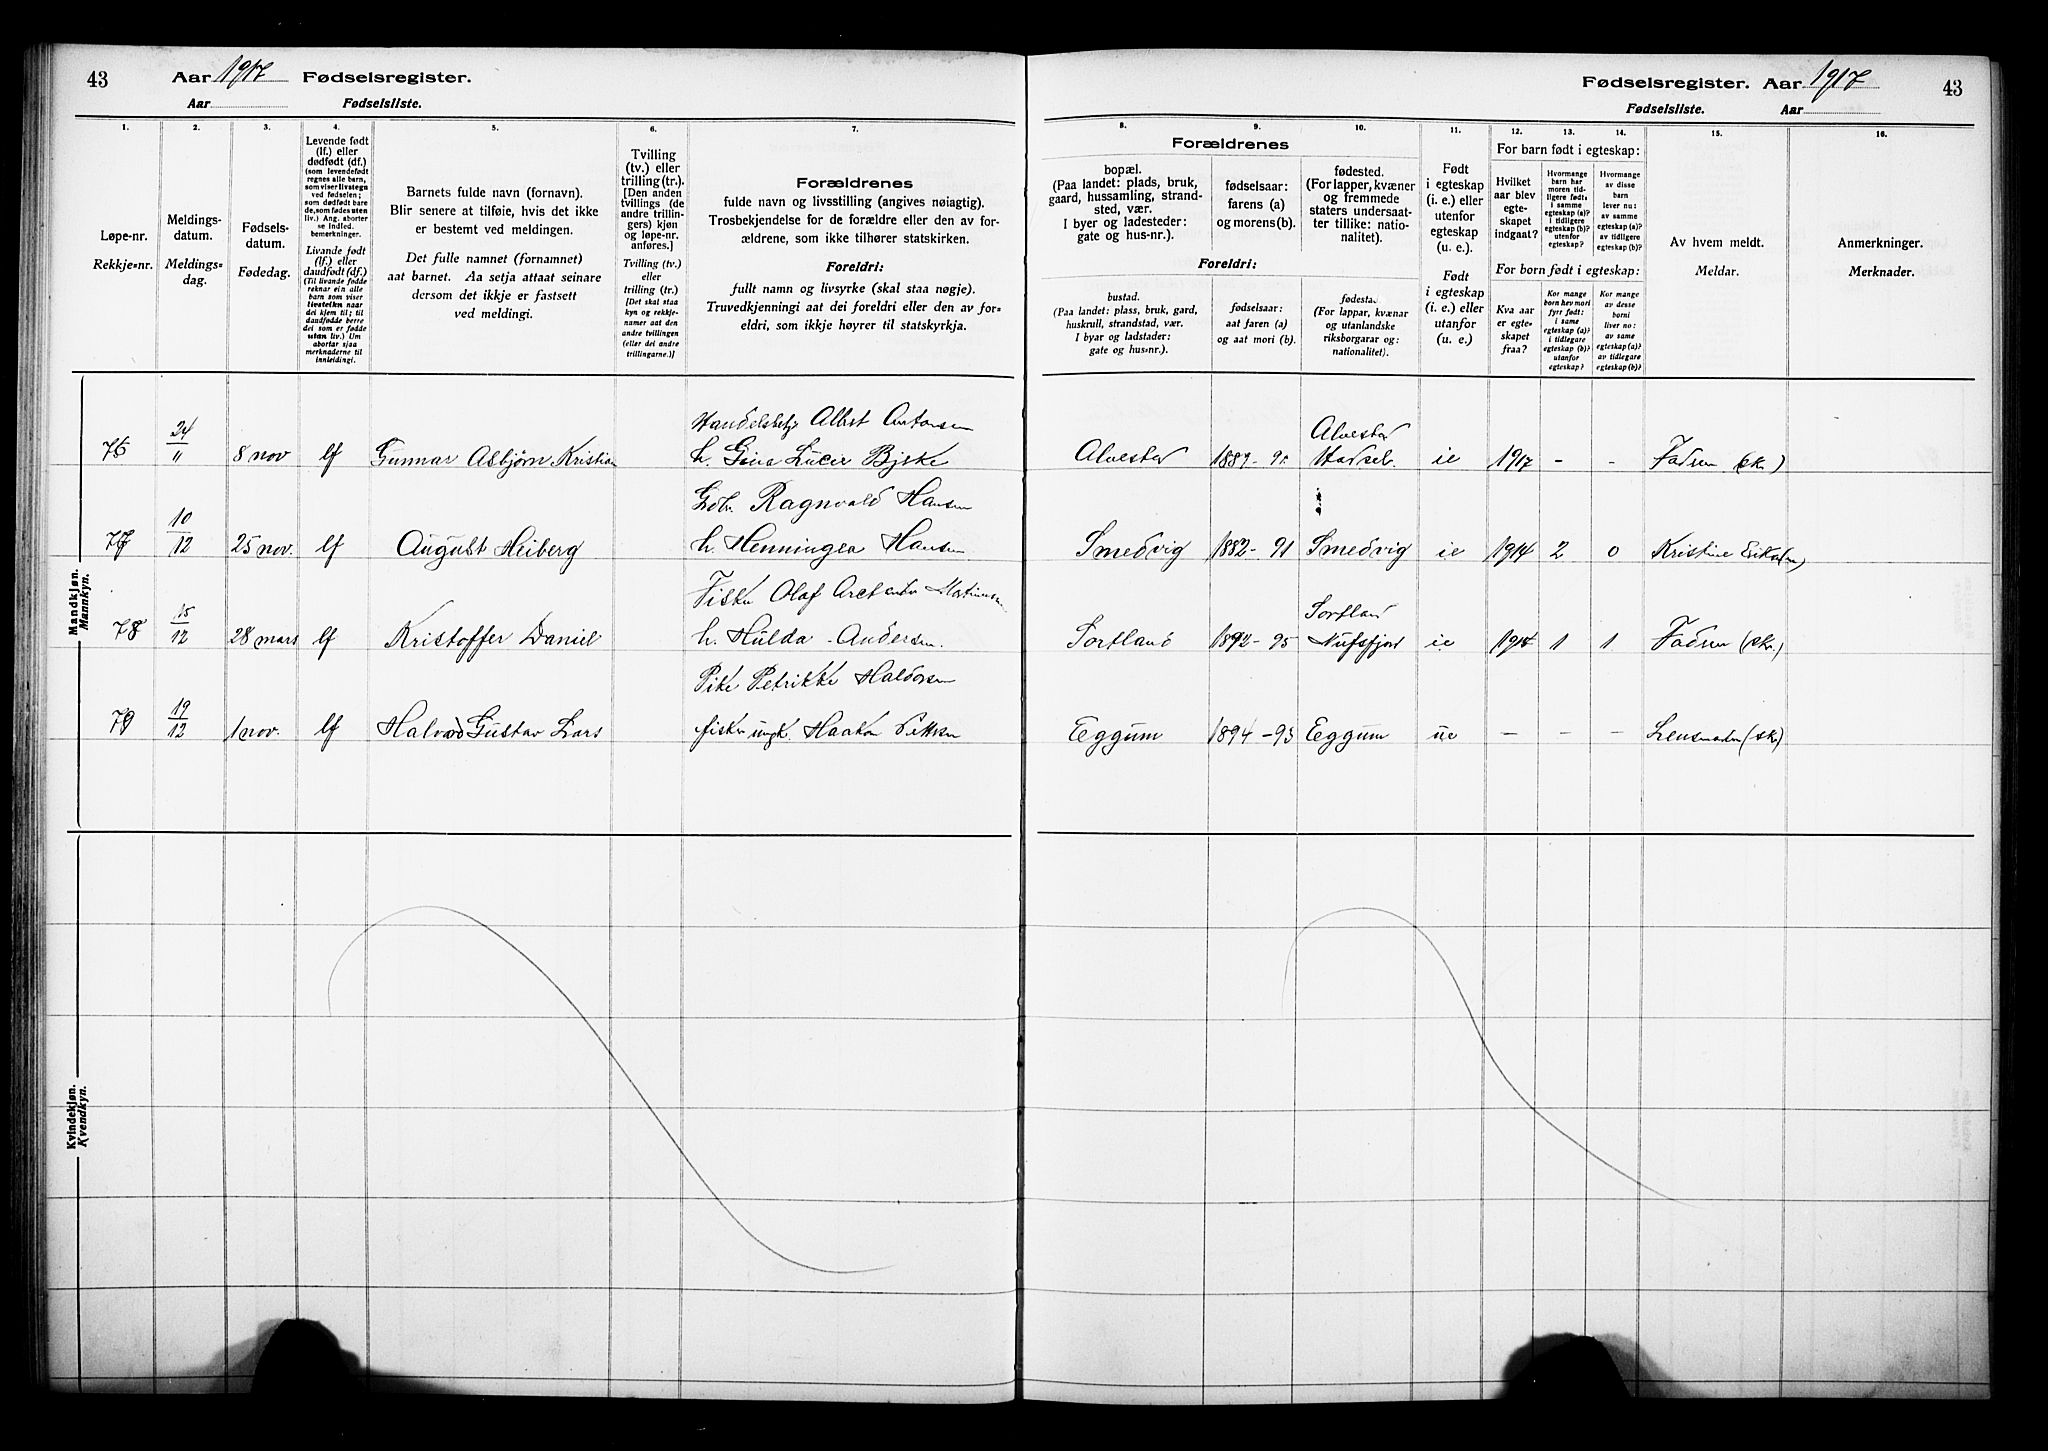 43 Aar 1917 Fødselsregister.
Aar Fødselsliste.
1. 2. 3. 4. 5. 6. 7.
Løpe-nr.
Rekkje=nr.
Meldings-
datum.
Meldings=
dag.
Fødsels-
datum.
Fødedag.
Levende født
(lf.) eller
dødfødt (df.)
(som levendefødt
regnes alle barn,
som viser livstegn
ved fødselen;
som dødfødt bare
de, som fødes uten
liv.) Ang. aborter
se indled.
bemerkninger.
Livande født
(lf.) eller
daudfødt (df.)
(Til livande fødde
reknar ein alle
barn som viser
livsteikn naar
dei kjem til; til
daudfødde berre
dei som er fødde
utan liv.) Um
abortar sjaa
merknaderne til
innleidingi.
Barnets fulde navn (fornavn).
Blir senere at tilføie, hvis det ikke
er bestemt ved meldingen.
Det fulle namnet (fornamnet)
aat barnet. Aa setja attaat seinare
dersom det ikkje er fastsett
ved meldingi.
Tvilling
(tv.) eller
trilling (tr.).
[Den anden
tvillings (de
andre trillin-
gers) kjøn
og løpe-nr.
anføres.]
Tvilling (tv.)
eller
trilling (tr.)
[Det skal staa
kyn og rekkje-
numer aat den
andre tvillingen
(eller dei andre
trillingarne.)]
Forældrenes
fulde navn og livsstilling (angives nøiagtig).
Trosbekjendelse for de forældre eller den av for-
ældrene, som ikke tilhører statskirken.
Foreldri:
fullt namn og livsyrke (skal staa nøgje).
Truvedkjenningi aat dei foreldri eller den av for=
eldri, som ikkje høyrer til statskyrkja.
Mandkjøn.
Mannkyn.
76 24/11 8 nov lf Gunnar Asbjørn Kristian
Albert Antonsen
h. Gina Lucie Bjske
77 10/12 25 nov. lf August Heiberg
Ragnvald Hansen
h. Henningea Hansen
78 15/12 28 mars lf Kristoffer Daniel
Olaf
h. Hulda Andersen.
79 19/12 1 nov. lf Halvard Gustav Lars
Pike Petrikke Haldorsen
fisker ungk. Haakon Pettersen
Kvindekjøn.
Kvendkyn.
Fødselsregister. Aar 1917 43
Fødselsliste. Aar
8. 9. 10. 11. 12. 13. 14. 15. 16.
Forældrenes
bopæl.
(Paa landet: plads, bruk,
gaard, hussamling, strand-
sted, vær.
I byer og ladesteder:
gate og hus-nr.).
fødselsaar:
farens (a)
og morens (b).
fødested.
(For lapper, kvæner
og fremmede
staters undersaat-
ter tillike: natio-
nalitet).
Foreldri:
bustad.
(Paa landet: plass, bruk, gard,
huskrull, strandstad, vær.
I byar og ladstader:
gate og hus=nr.).
fødselsaar:
aat faren (a)
og aat mori (b).
fødestad.
(For lappar, kvænar
og utanlandske
riksborgarar og:
nationalitet).
Født
i egteskap
(i. e.) eller
utenfor
egteskap
(u. e.).
Født
i egteskap
(i. e.) eller
utanfor
(u. e.).
For barn født i egteskap:
Hvilket
aar blev
egte-
skapet
indgaat?
Hvormange
barn har
moren tid-
ligere født:
i samme
egteskap (a)?
i tidligere
egteskap (b)?
utenfor
egteskap?
Hvormange
av disse
barn
lever nu:
av samme
egteskap (a)?
av tidligere
egteskap (b)?
For born født i egteskap:
Kva aar
er egte-
skapet
fraa?
Kor mange
born hev mori
fyrr født:
i same
egteskap (a)?
i tidlegare
egteskap (b)?
utanfor
egteskap?
Kor mange
av desse
borni
liver no:
av same
egteskap (a)?
av tidlegare
egteskap (b)?
Av hvem meldt.
Meldar.
Anmerkninger.
Merknader.
Alvestad
Alvestad Hadsel. ie 1917 - - Fadren (skr)
Smedvig 1882 - 91 Smedvig ie 1914 2 0 Kristine
Sortland
Sortland 1892 - 95 Nufsfjord ie 1 1 Fadren (skr.)
Eggum 1894 - 95 Eggum ue - - - Lensmanden (skr)